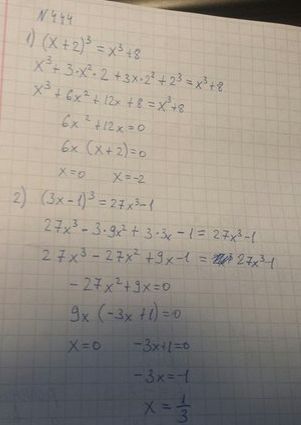 N444
1) (x+2)³ = x³+8
x³+3·x²·2+3x·2²+2³=x³+8
x³+6x²+12x+8=x³+8
6x²+12x=0
6x(x+2)=0
x=0 x=-2
2) (3x-1)³=27x³-1
27x³-3·9x²+3·3x-1=27x³-1
27x³-27x²+9x-1=27x³-1
-27x²+9x=0
9x(-3x+1)=0
x=0 -3x+1=0
-3x=-1
x=1/3